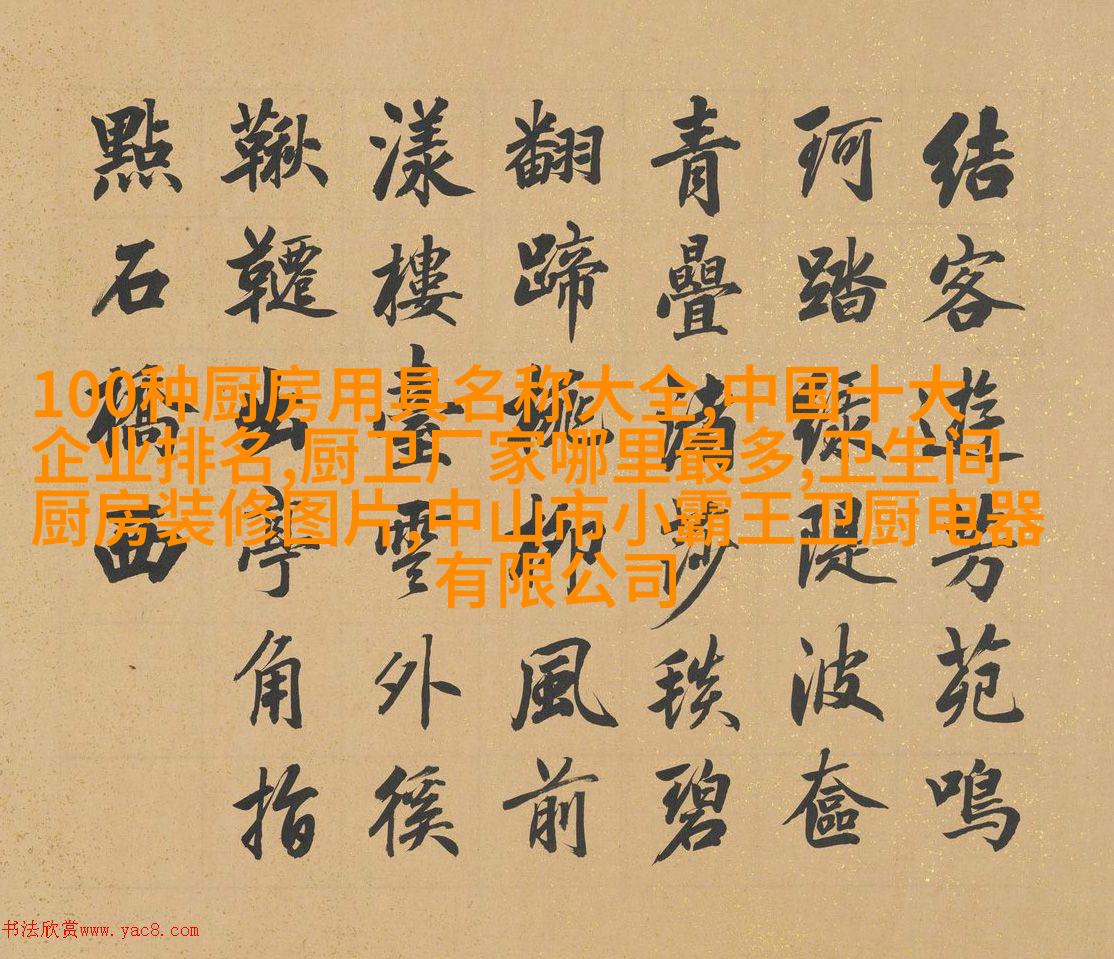 结客遊芳苑鳴
珂踏綠隄波奩
青疊毯碧
翻蹄柳風前
漾樓臺雲外徯
鞦韆出亭角指
點石橋西
100种厨房用具名称大全,中国十大
企业排名,厨卫厂家哪里最多,卫生间
厨房装修图片,中山市小霸王卫厨电器
有限公司
书法欣赏www.yac8.com